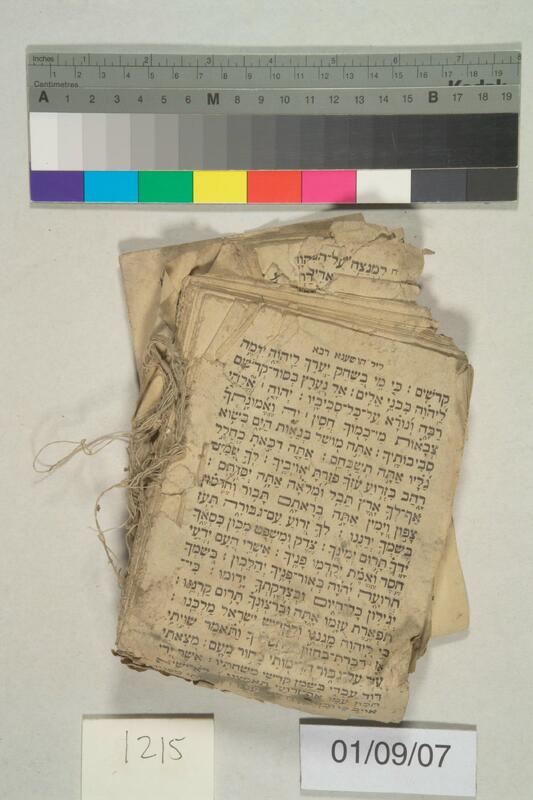 Inches 1 2 3 4 5 6 7 8
1 2 3 4 5 6 7 8 9 10 11 12 13 14 15 16 17 18 19
Centimetres
A 1 2 3 4 5 6 M 8 9 10 11 12 13 14 15 B 17 18 19
למנצח על
ליל הושענא רבא
קְדשִׁים: כִּי מִי בַשַּׁחַק יַעֲרֹךְ לַיהוָֹה יִדְמֶה
לַיהוָֹה בִּבְנֵי אֵלִים: אֵל נַעֲרָץ בְּסוֹד־קְדשִׁים
רַבָּה וְנוֹרָא עַל־כָּל־סְבִיבָיו: יְהוָֹה אֱלֹהֵי
צְבָאוֹת מִי־כָמוֹךָ חֲסִין יָהּ וֶאֱמוּנָתְךָ
סְבִיבוֹתֶיךָ: אַתָּה מוֹשֵׁל בְּגֵאוּת הַיָּם בְּשׂוֹא
גַלָּיו אַתָּה תְשַׁבְּחֵם: אַתָּה דִכִּאתָ כֶחָלָל
רָהַב בִּזְרוֹעַ עֻזְּךָ פִּזַּרְתָּ אוֹיְבֶיךָ: לְךָ שָׁמַיִם
אַף־לְךָ אָרֶץ תֵּבֵל וּמְלֹאָהּ אַתָּה יְסַדְתָּם:
צָפוֹן וְיָמִין אַתָּה בְרָאתָם תָּבוֹר וְחֶרְמוֹן
בְּשִׁמְךָ יְרַנֵּנוּ: לְךָ זְרוֹעַ עִם־גְּבוּרָה תָּעֹז
יָדְךָ תָּרוּם יְמִינֶךָ: צֶדֶק וּמִשְׁפָּט מְכוֹן כִּסְאֶךָ
חֶסֶד וֶאֱמֶת יְקַדְּמוּ פָנֶיךָ: אַשְׁרֵי הָעָם יֹדְעֵי
תְרוּעָה יְהוָֹה בְּאוֹר־פָּנֶיךָ יְהַלֵּכוּן: בְּשִׁמְךָ
יְגִילוּן כָּל־הַיּוֹם וּבְצִדְקָתְךָ יָרוּמוּ: כִּי־
תִפְאֶרֶת עֻזָּמוֹ אָתָּה וּבִרְצוֹנְךָ תָּרוּם קַרְנֵנוּ:
כִּי לַיהוָֹה מָגִנֵּנוּ וְלִקְדוֹשׁ יִשְׂרָאֵל מַלְכֵּנוּ:
אָז דִּבַּרְתָּ־בְחָזוֹן וַתֹּאמֶר שִׁוִּיתִי
עֵזֶר עַל־גִּבּוֹר הֲרִימוֹתִי בָחוּר מֵעָם: מָצָאתִי
דָּוִד עַבְדִּי בְּשֶׁמֶן קָדְשִׁי מְשַׁחְתִּיו: אֲשֶׁר יָדִי
1215
01/09/07